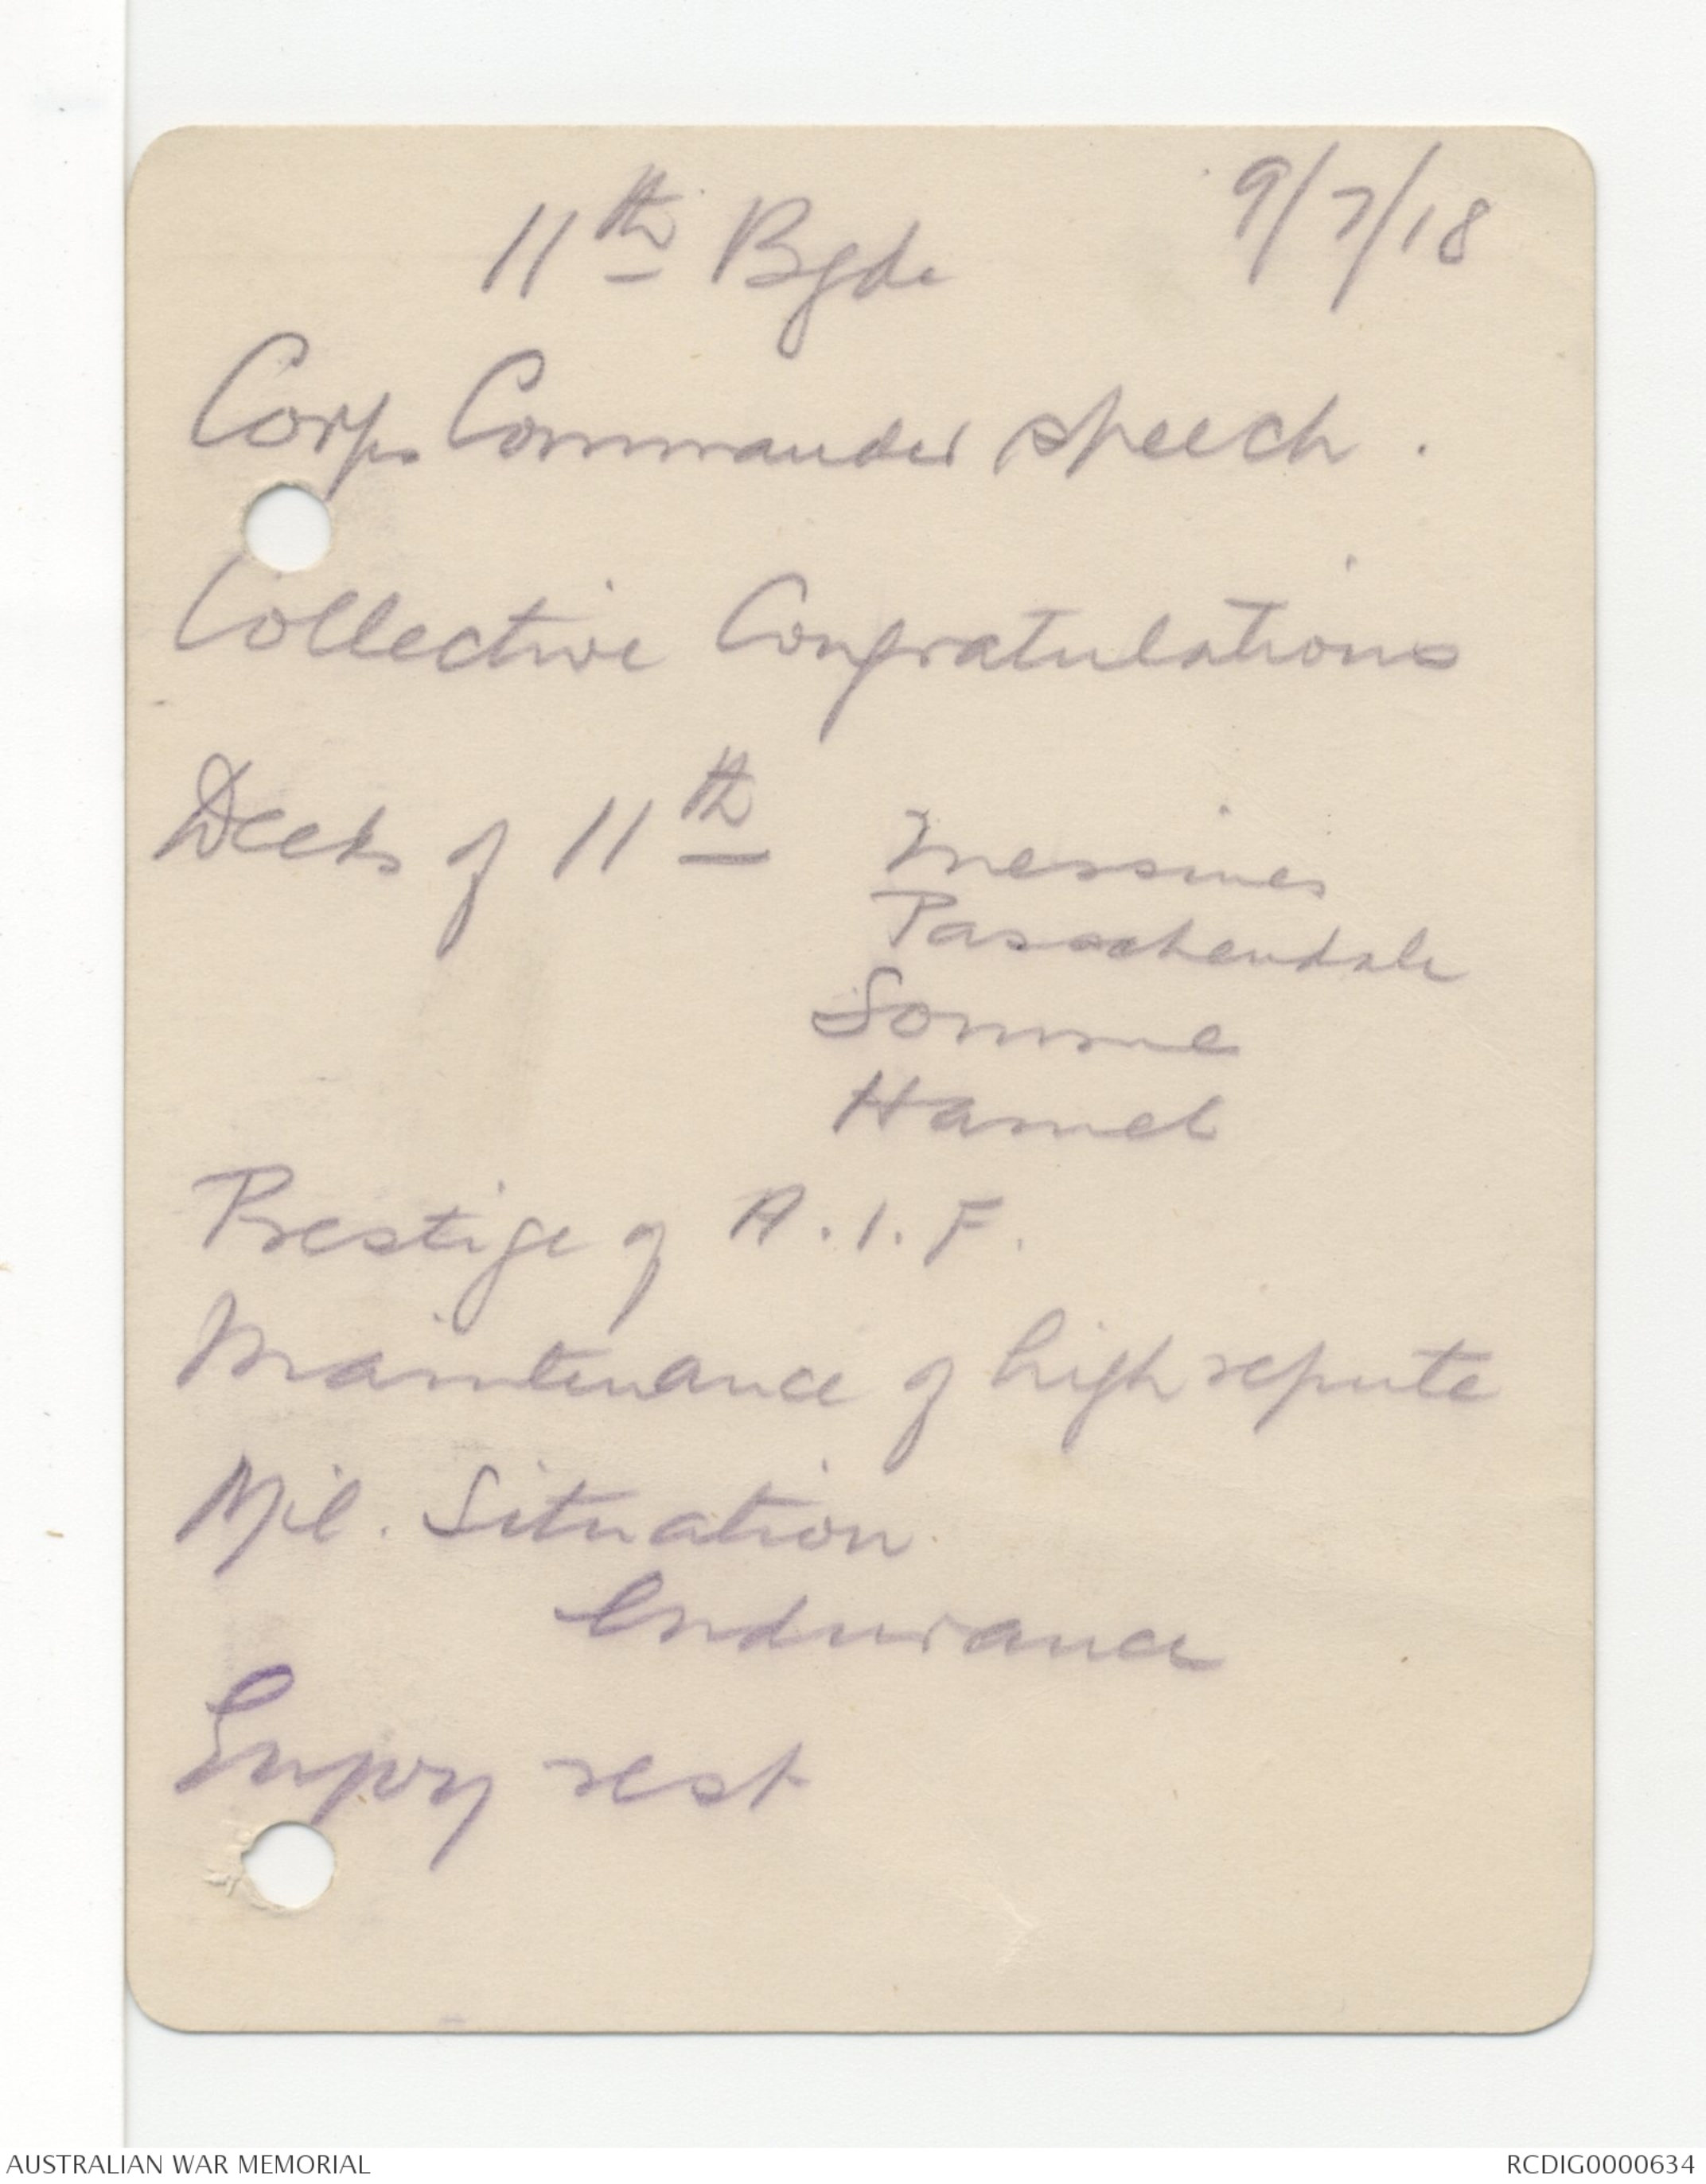 11th Bgde 9/7/18
Corps Commander speech.
Collective Congratulations
Deeds of 11th Messines
Passchendale
Somme
Hamel
Prestige of A.I.F.
Maintenance of high repute
Mil. Situation
Endurance
Enjoy rest
AUSTRALIAN WAR MEMORIAL RCDIG0000634